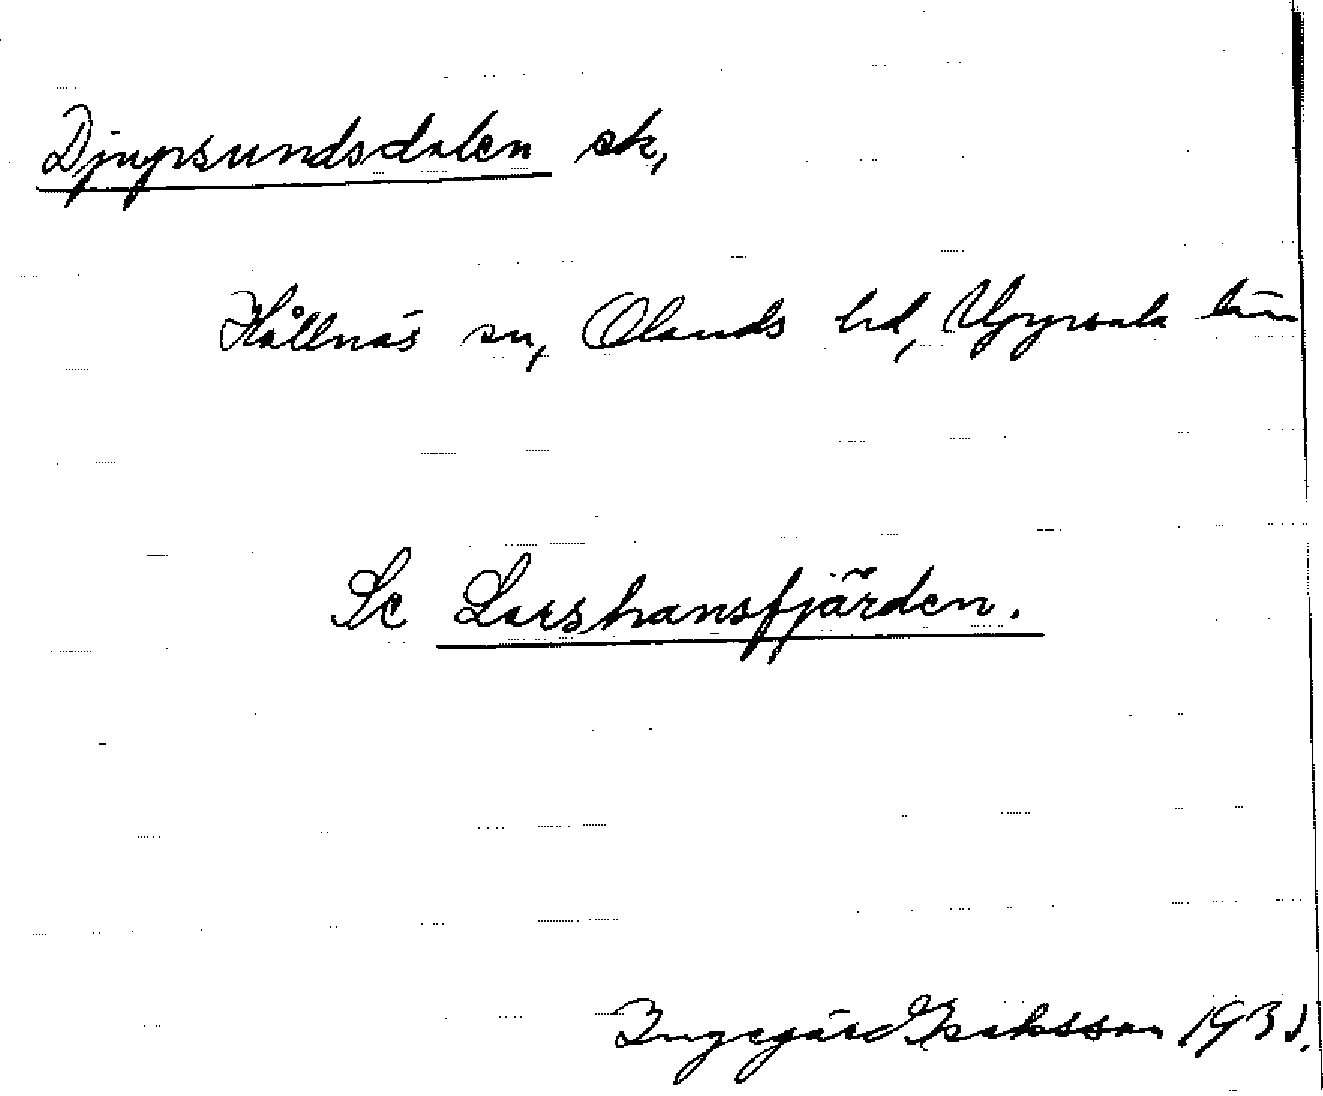 Djupsundsdalen sk,
Hållnäs sn, Olands hd, Uppsala län
Se Larshansfjärden.
Ingegärd Isaksson 193